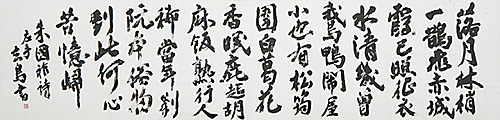 落月林梢
一鶴飛赤城
霞已照征衣
水清幾曾
鵞鴨鬧屋
小也有松筠
圍白葛花
香眠鹿起胡
麻飯熟行人
稀當年劉
阮本俗物
到此何心
苦憶歸
朱國祚詩
左手